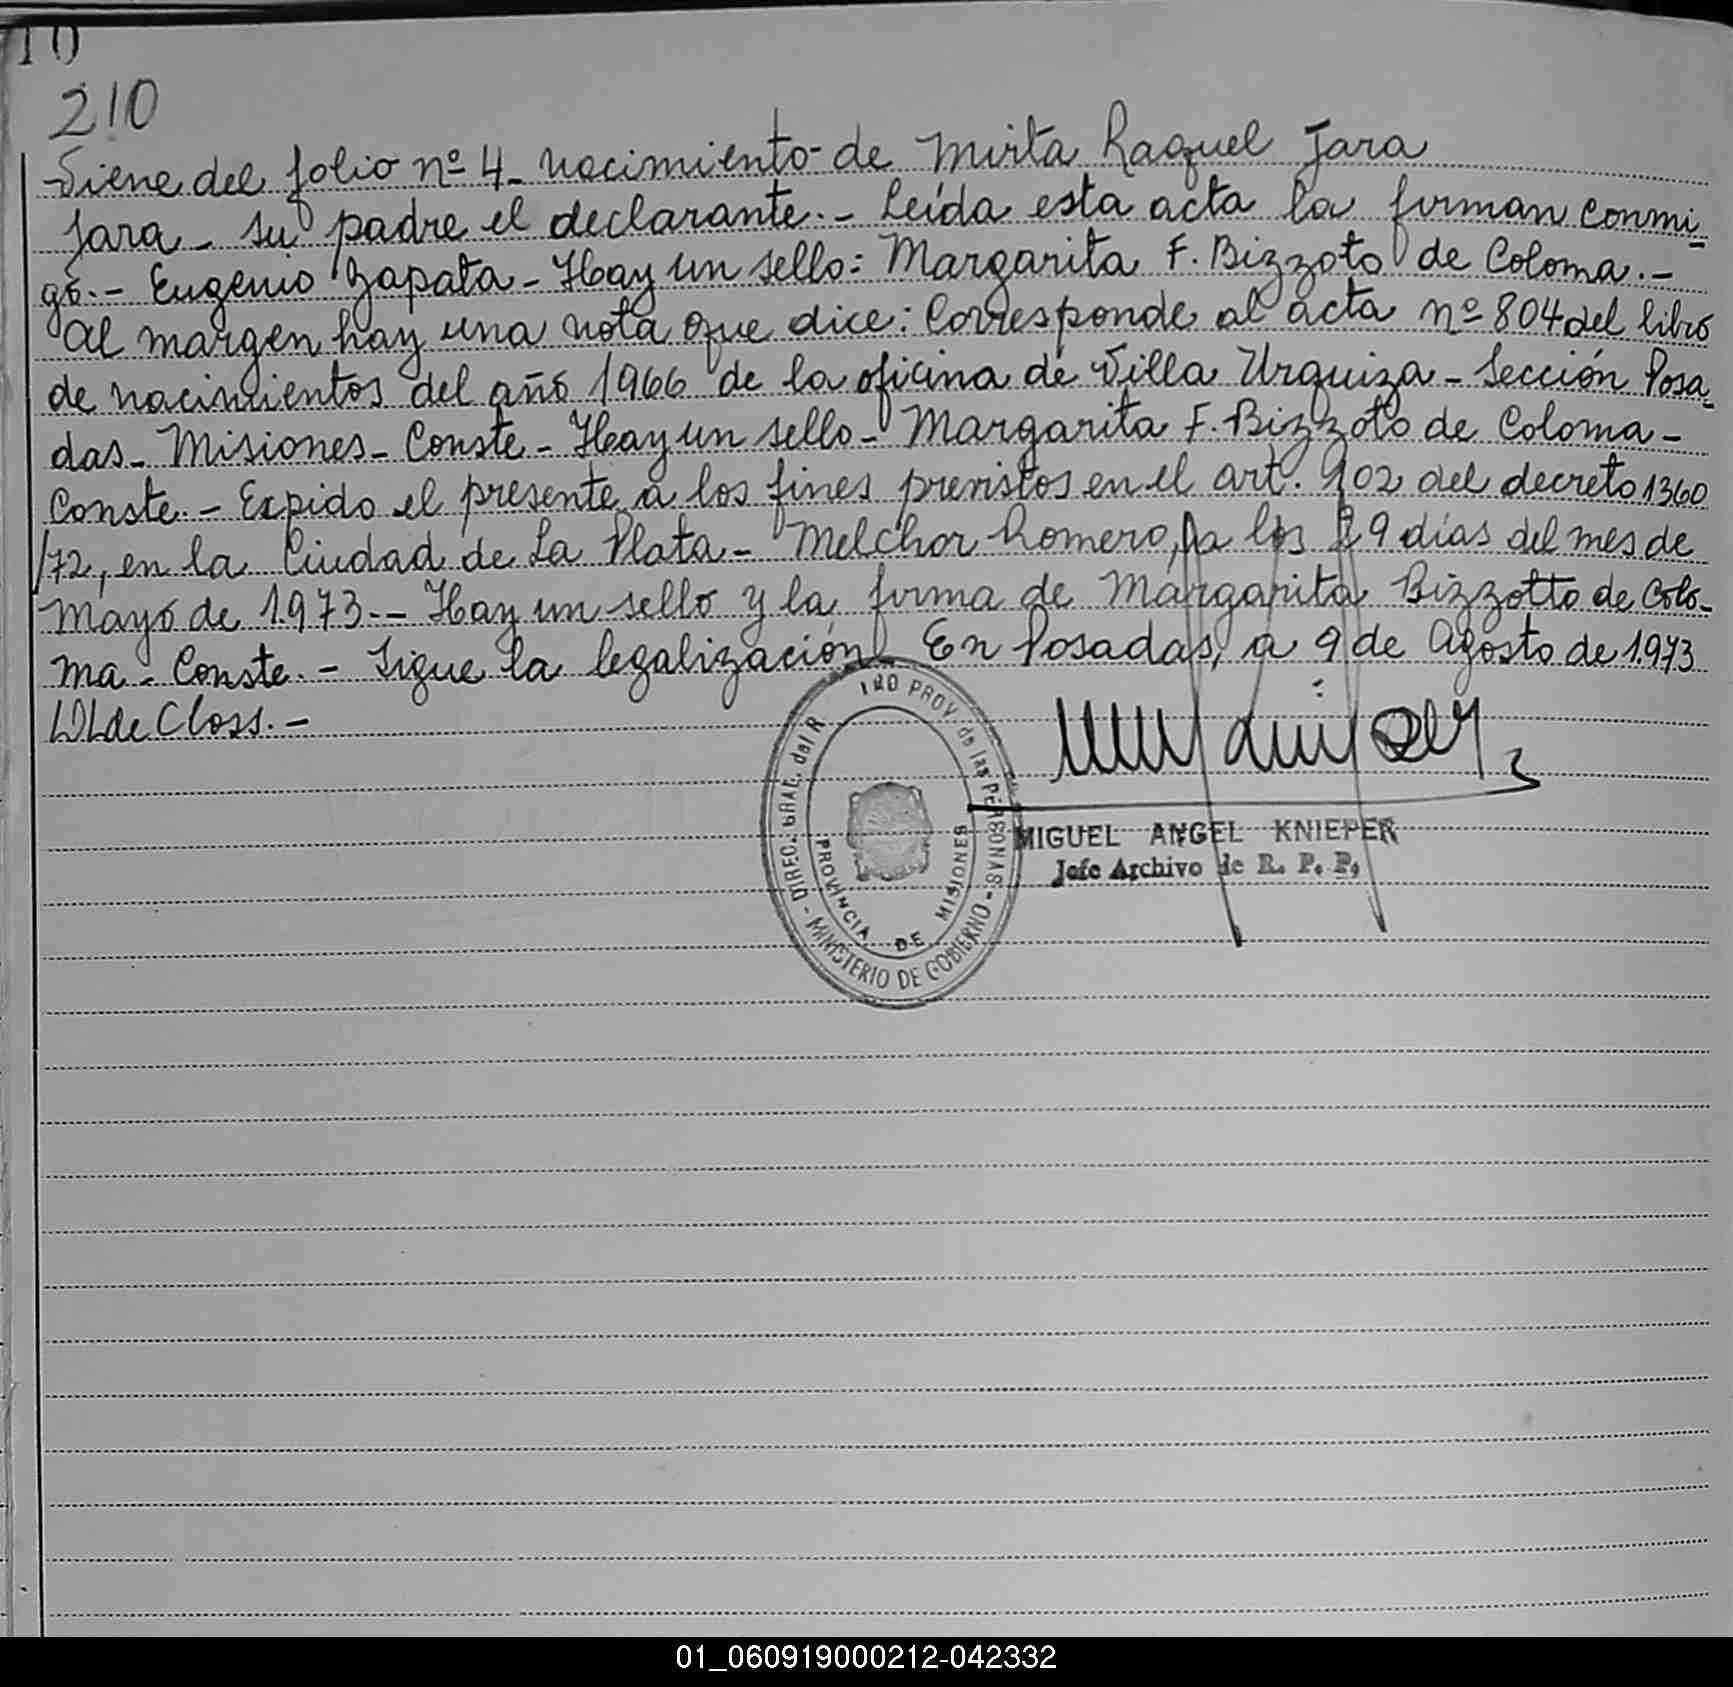 10
210
Viene del folio nº 4_ nacimiento de Mirta Raquel Jara
Jara_ su padre el declarante._ Leída esta acta la firman conmi-
go.- Eugenio Zapata - Hay un sello: Margarita F. Bizzoto de Coloma.-
Al margen hay una nota que dice: Corresponde al acta nº 804 del libro
de nacimientos del año 1966 de la oficina de Villa Urquiza - Sección Posa-
das_ Misiones_ Conste - Hay un sello - Margarita F. Bizzoto de Coloma -
Conste.- Expido el presente a los fines previstos en el art. 902 del decreto 1360
/72, en la Ciudad de La Plata - Melchor Romero, a los 29 días del mes de
Mayo de 1.973.- Hay un sello y la firma de Margarita Bizzotto de Colo-
ma - Conste.- Sigue la legalización En Posadas, a 9 de Agosto de 1.973
LDL de Closs.-
DIREC. GRAL. del R PROV. de las PERSONAS - MINISTERIO DE GOBIERNO -
PROVINCIA DE MISIONES
MIGUEL ANGEL KNIEPER
Jefe Archivo de R. P. P.
01_060919000212-042332